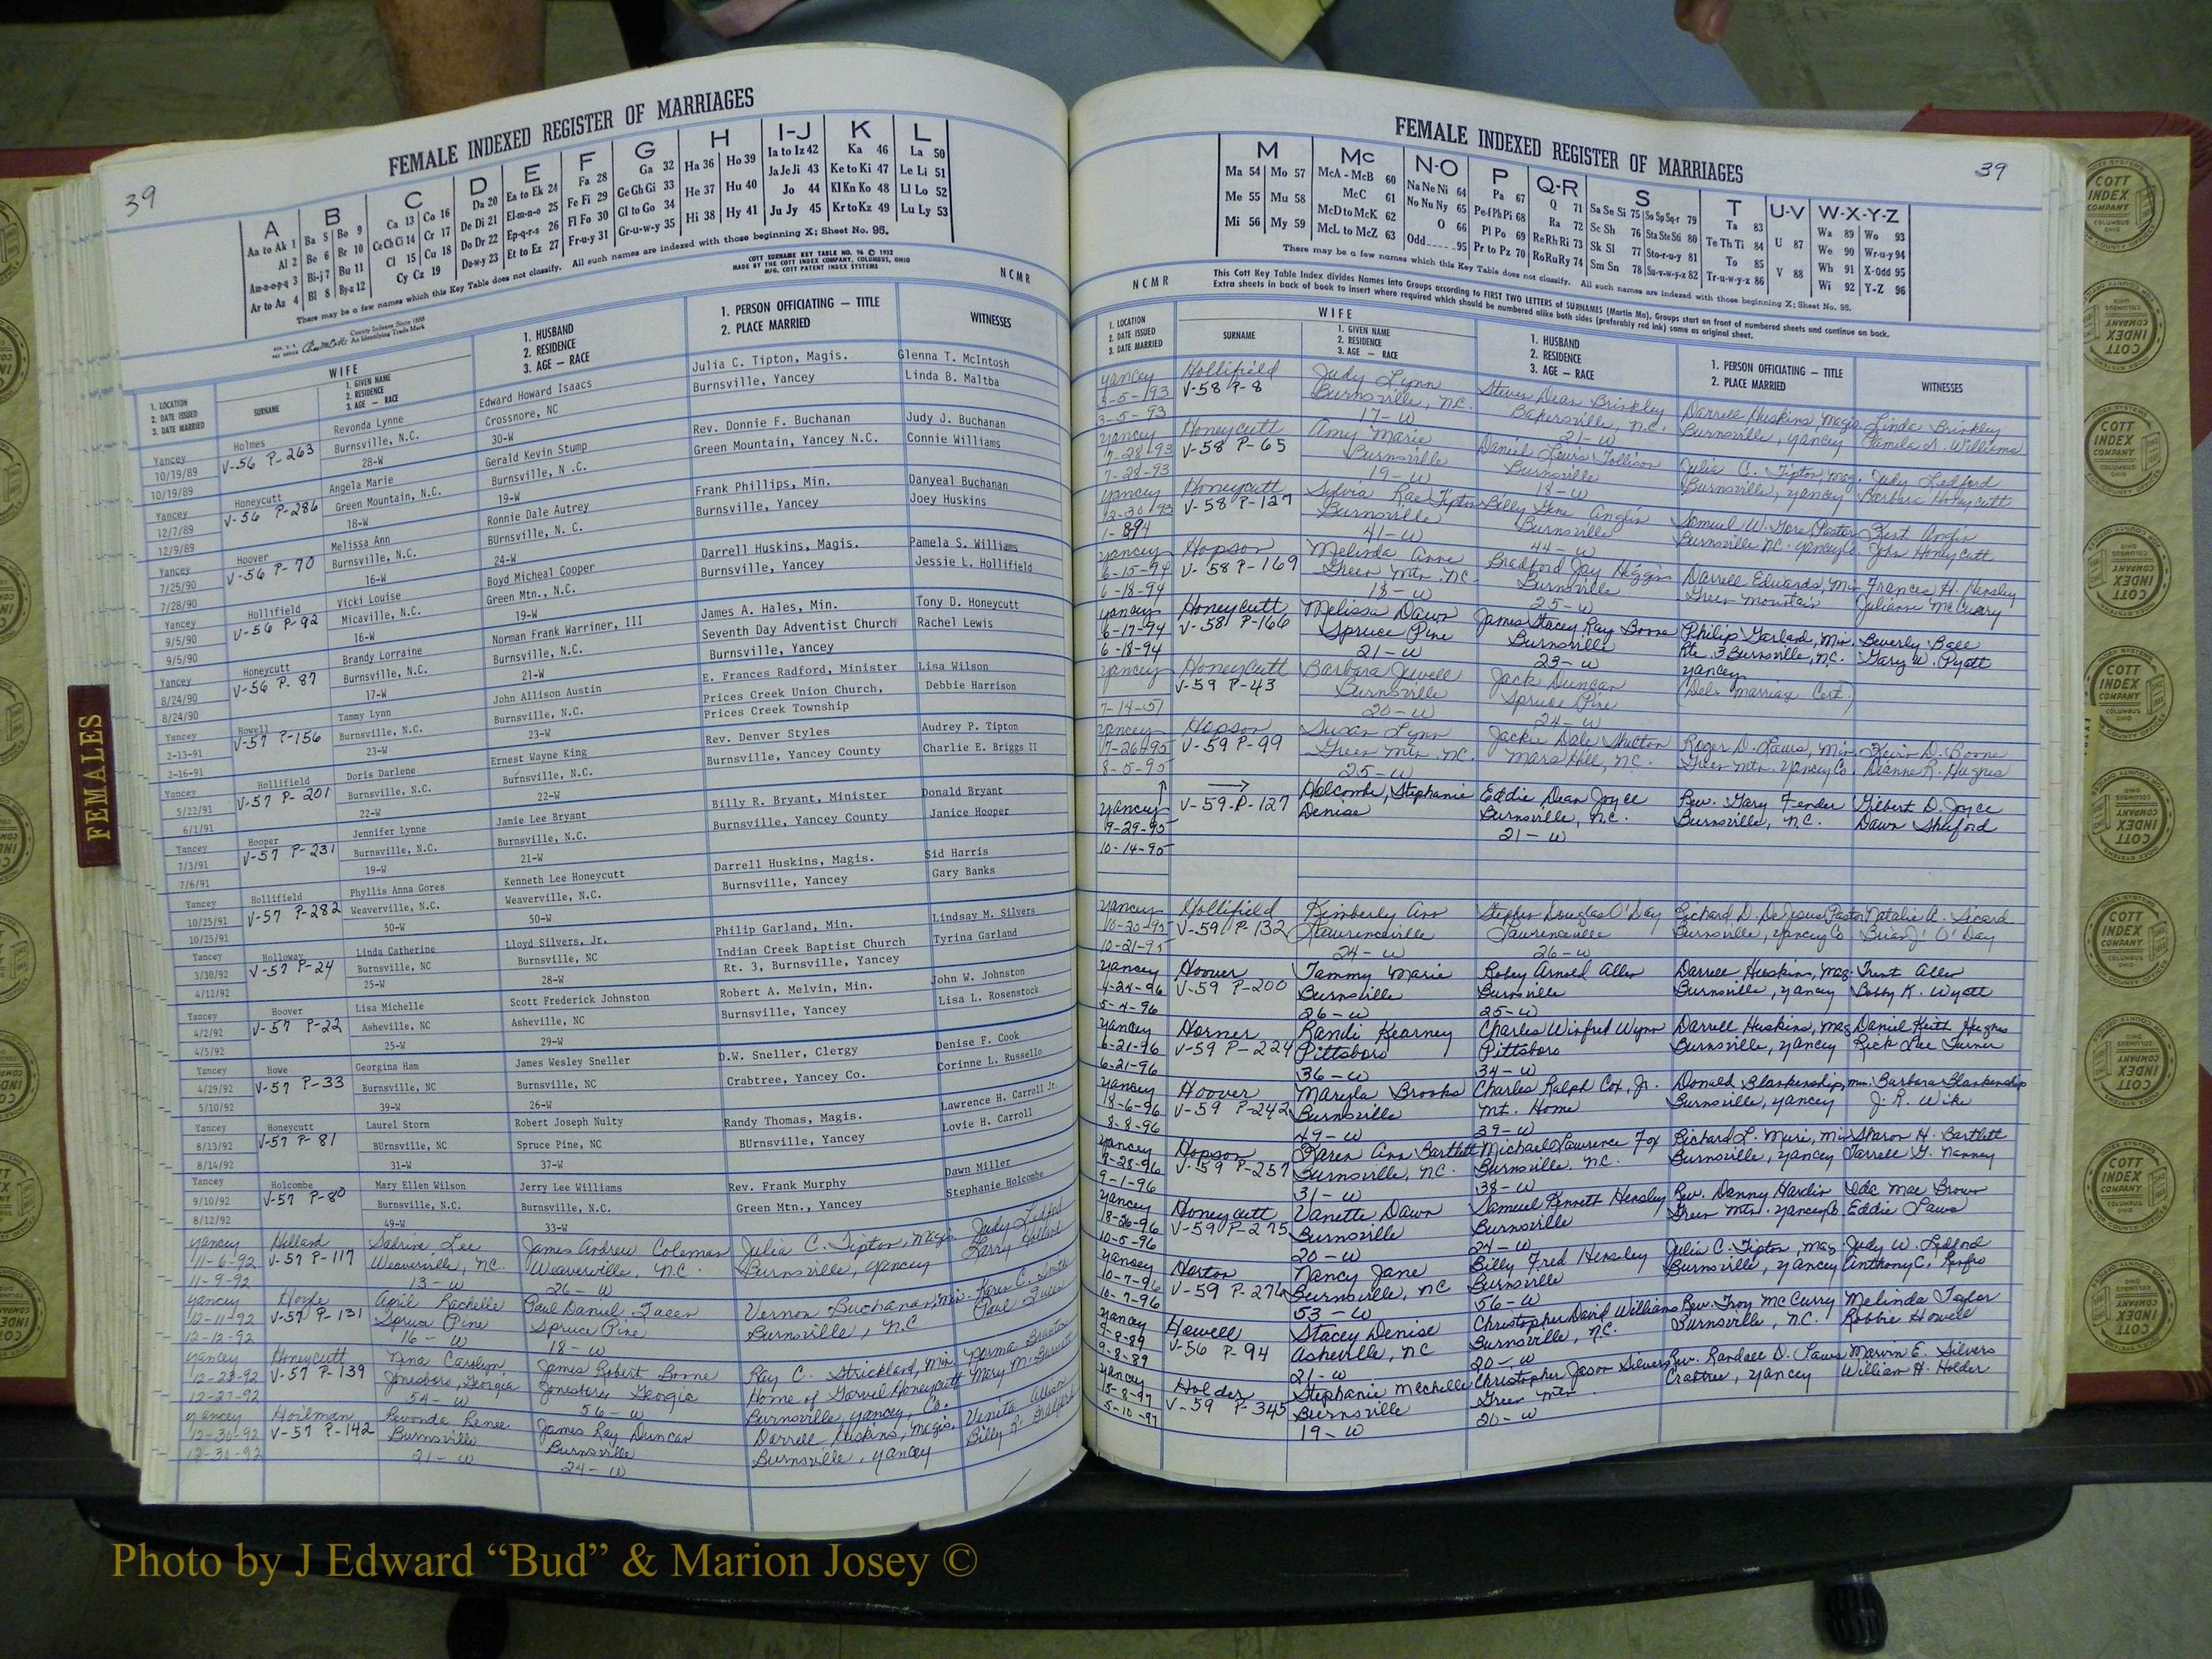 FEMALE INDEXED REGISTER OF MARRIAGES
39
A B C D E F G H I-J K L
Aa to Ak 1 Ba 5 Bo 9 Ca 13 Co 16 Da 20 Ea to Ek 24 Fa 28 Ga 32 Ha 36 Ho 39 Ia to Iz 42 Ka 46 La 50
Al 2 Be 6 Br 10 Ce Ch Ci 14 Cr 17 De Di 21 El-m-n-o 25 Fe Fi 29 Ge Gh Gi 33 He 37 Hu 40 Ja Je Ji 43 Ke to Ki 47 Le Li 51
Am-n-o-p-q 3 Bi-j 7 Bu 11 Cl 15 Cu 18 Do Dr 22 Ep-q-r-s 26 Fl Fo 30 Gl to Go 34 Hi 38 Hy 41 Jo 44 Kl Kn Ko 48 Ll Lo 52
Ar to Az 4 Bl 8 By-z 12 Cy Cz 19 Du-w-y 23 Et to Ez 27 Fr-u-y 31 Gr-u-w-y 35 Ju Jy 45 Kr to Kz 49 Lu Ly 53
There may be a few names which this Key Table does not classify. All such names are indexed with those beginning X; Sheet No. 95.
COTT SURNAME KEY TABLE NO. 96 © 1952
MADE BY THE COTT INDEX COMPANY, COLUMBUS, OHIO
MFG. COTT PATENT INDEX SYSTEMS
NCMR
County Indexes Since 1888
An Identifying Trade Mark
1. LOCATION
2. DATE ISSUED
3. DATE MARRIED
WIFE
SURNAME
1. GIVEN NAME
2. RESIDENCE
3. AGE — RACE
1. HUSBAND
2. RESIDENCE
3. AGE — RACE
1. PERSON OFFICIATING — TITLE
2. PLACE MARRIED
WITNESSES
Yancey Holmes Revonda Lynne Edward Howard Isaacs Julia C. Tipton, Magis. Glenna T. McIntosh
10/19/89 V-56 P-263 Burnsville, N.C. Crossnore, NC Burnsville, Yancey Linda B. Maltba
10/19/89 28-W 30-W
Yancey Honeycutt Angela Marie Gerald Kevin Stump Rev. Donnie F. Buchanan Judy J. Buchanan
12/7/89 V-56 P-286 Green Mountain, N.C. Burnsville, N .C. Green Mountain, Yancey N.C. Connie Williams
12/9/89 18-W 19-W
Yancey Hoover Melissa Ann Ronnie Dale Autrey Frank Phillips, Min. Danyeal Buchanan
7/25/90 V-56 P-70 Burnsville, N.C. BUrnsville, N. C. Burnsville, Yancey Joey Huskins
7/28/90 16-W 24-W
Yancey Hollifield Vicki Louise Boyd Micheal Cooper Darrell Huskins, Magis. Pamela S. Williams
9/5/90 V-56 P-92 Micaville, N.C. Green Mtn., N.C. Burnsville, Yancey Jessie L. Hollifield
9/5/90 16-W 19-W
Yancey Honeycutt Brandy Lorraine Norman Frank Warriner, III James A. Hales, Min. Tony D. Honeycutt
8/24/90 V-56 P. 87 Burnsville, N.C. Burnsville, N.C. Seventh Day Adventist Church Rachel Lewis
8/24/90 17-W 21-W Burnsville, Yancey
Yancey Howell Tammy Lynn John Allison Austin E. Frances Radford, Minister Lisa Wilson
2-13-91 V-57 P-156 Burnsville, N.C. Burnsville, N.C. Prices Creek Union Church, Debbie Harrison
2-16-91 23-W 23-W Prices Creek Township
Yancey Hollifield Doris Darlene Ernest Wayne King Rev. Denver Styles Audrey P. Tipton
5/22/91 V-57 P-201 Burnsville, N.C. Burnsville, N.C. Burnsville, Yancey County Charlie E. Briggs II
6/1/91 22-W 22-W
Yancey Hooper Jennifer Lynne Jamie Lee Bryant Billy R. Bryant, Minister Donald Bryant
7/3/91 V-57 P-231 Burnsville, N.C. Burnsville, N.C. Burnsville, Yancey County Janice Hooper
7/6/91 19-W 21-W
Yancey Hollifield Phyllis Anna Gores Kenneth Lee Honeycutt Darrell Huskins, Magis. Sid Harris
10/25/91 V-57 P-282 Weaverville, N.C. Weaverville, N.C. Burnsville, Yancey Gary Banks
10/25/91 50-W 50-W
Yancey Holloway Linda Catherine Lloyd Silvers, Jr. Philip Garland, Min. Lindsay M. Silvers
3/30/92 V-57 P-24 Burnsville, NC Burnsville, NC Indian Creek Baptist Church Tyrina Garland
4/12/92 25-W 28-W Rt. 3, Burnsville, Yancey
Yancey Hoover Lisa Michelle Scott Frederick Johnston Robert A. Melvin, Min. John W. Johnston
4/2/92 V-57 P-22 Asheville, NC Asheville, NC Burnsville, Yancey Lisa L. Rosenstock
4/5/92 25-W 29-W
Yancey Howe Georgina Ham James Wesley Sneller D.W. Sneller, Clergy Denise F. Cook
4/29/92 V-57 P-33 Burnsville, NC Burnsville, NC Crabtree, Yancey Co. Corinne L. Russello
5/10/92 39-W 26-W
Yancey Honeycutt Laurel Storm Robert Joseph Nulty Randy Thomas, Magis. Lawrence H. Carroll Jr.
8/13/92 V-57 P-81 BUrnsville, NC Spruce Pine, NC BUrnsville, Yancey Lovie H. Carroll
8/14/92 31-W 37-W
Yancey Holcombe Mary Ellen Wilson Jerry Lee Williams Rev. Frank Murphy Dawn Miller
9/10/92 V-57 P-80 Burnsville, N.C. Burnsville, N.C. Green Mtn., Yancey Stephanie Holcombe
8/12/92 49-W 33-W
Yancey Holland Sabrina Lee James Andrew Coleman Julia C. Tipton, Magis Judy Ledford
11-6-92 V-57 P-117 Weaverville, N.C. Weaverville, N.C. Burnsville, Yancey Larry Holland
11-9-92 13-W 26-W
Yancey Hoyle April Rachelle Paul Daniel Vernon Buchanan, Min.
12-11-92 V-57 P-131 Spruce Pine Spruce Pine Burnsville, N.C
12-12-92 16-W 18-W
Yancey Honeycutt Nina Carolyn James Robert Boone Ray C. Strickland, Min.
12-23-92 V-57 P-139 Jonesboro, Georgia Jonesboro Georgia Home of Garvel Honeycutt
12-27-92 54-W 56-W Burnsville, Yancey, Co.
Yancey Hoilman Revonda Renee James Ray Duncan Darrell Huskins, Magis.
12-30-92 V-57 P-142 Burnsville Burnsville Burnsville, Yancey
12-30-92 21-W 24-W
FEMALES
FEMALE INDEXED REGISTER OF MARRIAGES
39
M Mc N-O P Q-R S T U-V W-X-Y-Z
Ma 54 Mo 57 McA - McB 60 Na Ne Ni 64 Pa 67 Q 71 Sa Se Si 75 So Sp Sq-r 79 Ta 83 U 87 Wa 89 Wo 93
Me 55 Mu 58 McC 61 No Nu Ny 65 Pe-f Ph Pi 68 Ra 72 Sc Sh 76 Sta Ste Sti 80 Te Th Ti 84 We 90 Wr-u-y 94
Mi 56 My 59 McD to McK 62 O 66 Pl Po 69 Re Rh Ri 73 Sk Sl 77 Sto-r-u-y 81 To 85 V 88 Wh 91 X-Odd 95
McL to McZ 63 Odd 95 Pr to Pz 70 Ro Ru Ry 74 Sm Sn 78 Su-v-w-y-z 82 Tr-u-w-y-z 86 Wi 92 Y-Z 96
There may be a few names which this Key Table does not classify. All such names are indexed with those beginning X; Sheet No. 95.
NCMR
This Cott Key Table Index divides Names into Groups according to FIRST TWO LETTERS of SURNAMES (Martin Ma). Groups start on front of numbered sheets and continue on back.
Extra sheets in back of book to insert where required which should be numbered alike both sides (preferably red ink) same as original sheet.
1. LOCATION
2. DATE ISSUED
3. DATE MARRIED
WIFE
SURNAME
1. GIVEN NAME
2. RESIDENCE
3. AGE — RACE
1. HUSBAND
2. RESIDENCE
3. AGE — RACE
1. PERSON OFFICIATING — TITLE
2. PLACE MARRIED
WITNESSES
Yancey Hollifield Judy Lynn Steven Dean Brinkley Darrell Huskins, Magis Linda Brinkley
3-5-93 V-58 P-8 Burnsville, N.C. Bakersville, N.C. Burnsville, Yancey Pamela S. Williams
3-5-93 17-W 21-W
Yancey Honeycutt Amy Marie Daniel Lewis Tollison Julia C. Tipton, Mag. Judy Ledford
7-28-93 V-58 P-65 Burnsville Burnsville Burnsville, Yancey Barbara Honeycutt
7-28-93 19-W 18-W
Yancey Honeycutt Sylvia Rae Tipton Billy Gene Anglin Samuel W. Gore, Pastor
12-30-93 V-58 P-127 Burnsville Burnsville Burnsville NC. Yancey Co John Honeycutt
1-8-94 41-W 44-W
Yancey Hopson Melinda Anne Bradford Jay Higgins Darrell Edwards, Min Frances H. Hensley
6-15-94 V-58 P-169 Green Mtn. NC. Burnsville Green Mountain Julianne McCurry
6-18-94 18-W 25-W
Yancey Honeycutt Melissa Dawn James Stacey Ray Boone Philip Garland, Min. Beverly Ball
6-17-94 V-58 P-166 Spruce Pine Burnsville Rte. 3 Burnsville, NC. Gary W. Pyatt
6-18-94 21-W 23-W Yancey
Yancey Honeycutt Barbara Jewell Jack Duncan (Del. Marriage Cert.)
V-59 P-43 Burnsville Spruce Pine
7-14-51 20-W 24-W
Yancey Hopson Susan Lynn Jackie Dale Shelton Roger D. Laws, Min. Kevin D. Boone
7-26-95 V-59 P-99 Green Mtn. NC. Mars Hill, NC. Green Mtn. Yancey Co. Dianne R. Hughes
8-5-95 25-W
Yancey V-59-P-127 Holcombe, Stephanie Eddie Dean Joyce Rev. Gary Fender Gilbert D. Joyce
9-29-95 Denise Burnsville, N.C. Burnsville, N.C. Dawn Shuford
10-14-95 21-W
Yancey Hollifield Kimberly Ann Stephen Douglas O'Day Richard D. DeJesus, Pastor Natalie A. Sicard
10-20-95 V-59 P-132 Lawrenceville Lawrenceville Burnsville, Yancey Co Brian J. O'Day
10-21-95 24-W 26-W
Yancey Hoover Tammy Marie Robey Arnold Allen Darrell Huskins, Mag. Trent Allen
4-24-96 V-59 P-200 Burnsville Burnsville Burnsville, Yancey Bobby K. Wyatt
5-4-96 26-W 25-W
Yancey Horner Randi Kearney Charles Winfred Wynn Darrell Huskins, Mag Daniel Keith Hughes
6-21-96 V-59 P-224 Pittsboro Pittsboro Burnsville, Yancey Rick Lee Turner
6-21-96 36-W 34-W
Yancey Hoover Maryla Brooks Charles Ralph Cox, Jr. Donald Blankenship, Min. Barbara Blankenship
8-6-96 V-59 P-242 Burnsville Mt. Home Burnsville, Yancey J. R. Wike
8-8-96 49-W 39-W
Yancey Hopson Karen Ann Bartlett Michael Lawrence Fox Richard L. Muri, Min Sharon H. Bartlett
8-28-96 V-59 P-257 Burnsville, NC. Burnsville, NC. Burnsville, Yancey Darrell G. Nanney
9-1-96 31-W 38-W
Yancey Honeycutt Vanette Dawn Samuel Kenneth Hensley Rev. Danny Hardin Ida Mae Brown
8-26-96 V-59 P-275 Burnsville Burnsville Green Mtn. Yancey Co Eddie Laws
10-5-96 20-W 24-W
Yancey Horton Nancy Jane Billy Fred Hensley Julia C. Tipton, Mag Judy W. Ledford
10-7-96 V-59 P-276 Burnsville, NC Burnsville Burnsville, Yancey Anthony C. Renfro
10-7-96 53-W 56-W
Yancey Howell Stacey Denise Christopher David Williams Rev. Troy McCurry Melinda Taylor
9-8-89 V-56 P-94 Asheville, NC Burnsville, N.C. Burnsville, N.C. Robbie Howell
9-8-89 21-W 20-W
Yancey Holder Stephanie Mechelle Christopher Jason Silvers Rev. Randall D. Laws Marvin E. Silvers
5-8-97 V-59 P-345 Burnsville Green Mtn. Crabtree, Yancey William H. Holder
5-10-97 19-W 20-W
COTT
INDEX
COMPANY
COLUMBUS
OHIO
Photo by J Edward “Bud” & Marion Josey ©